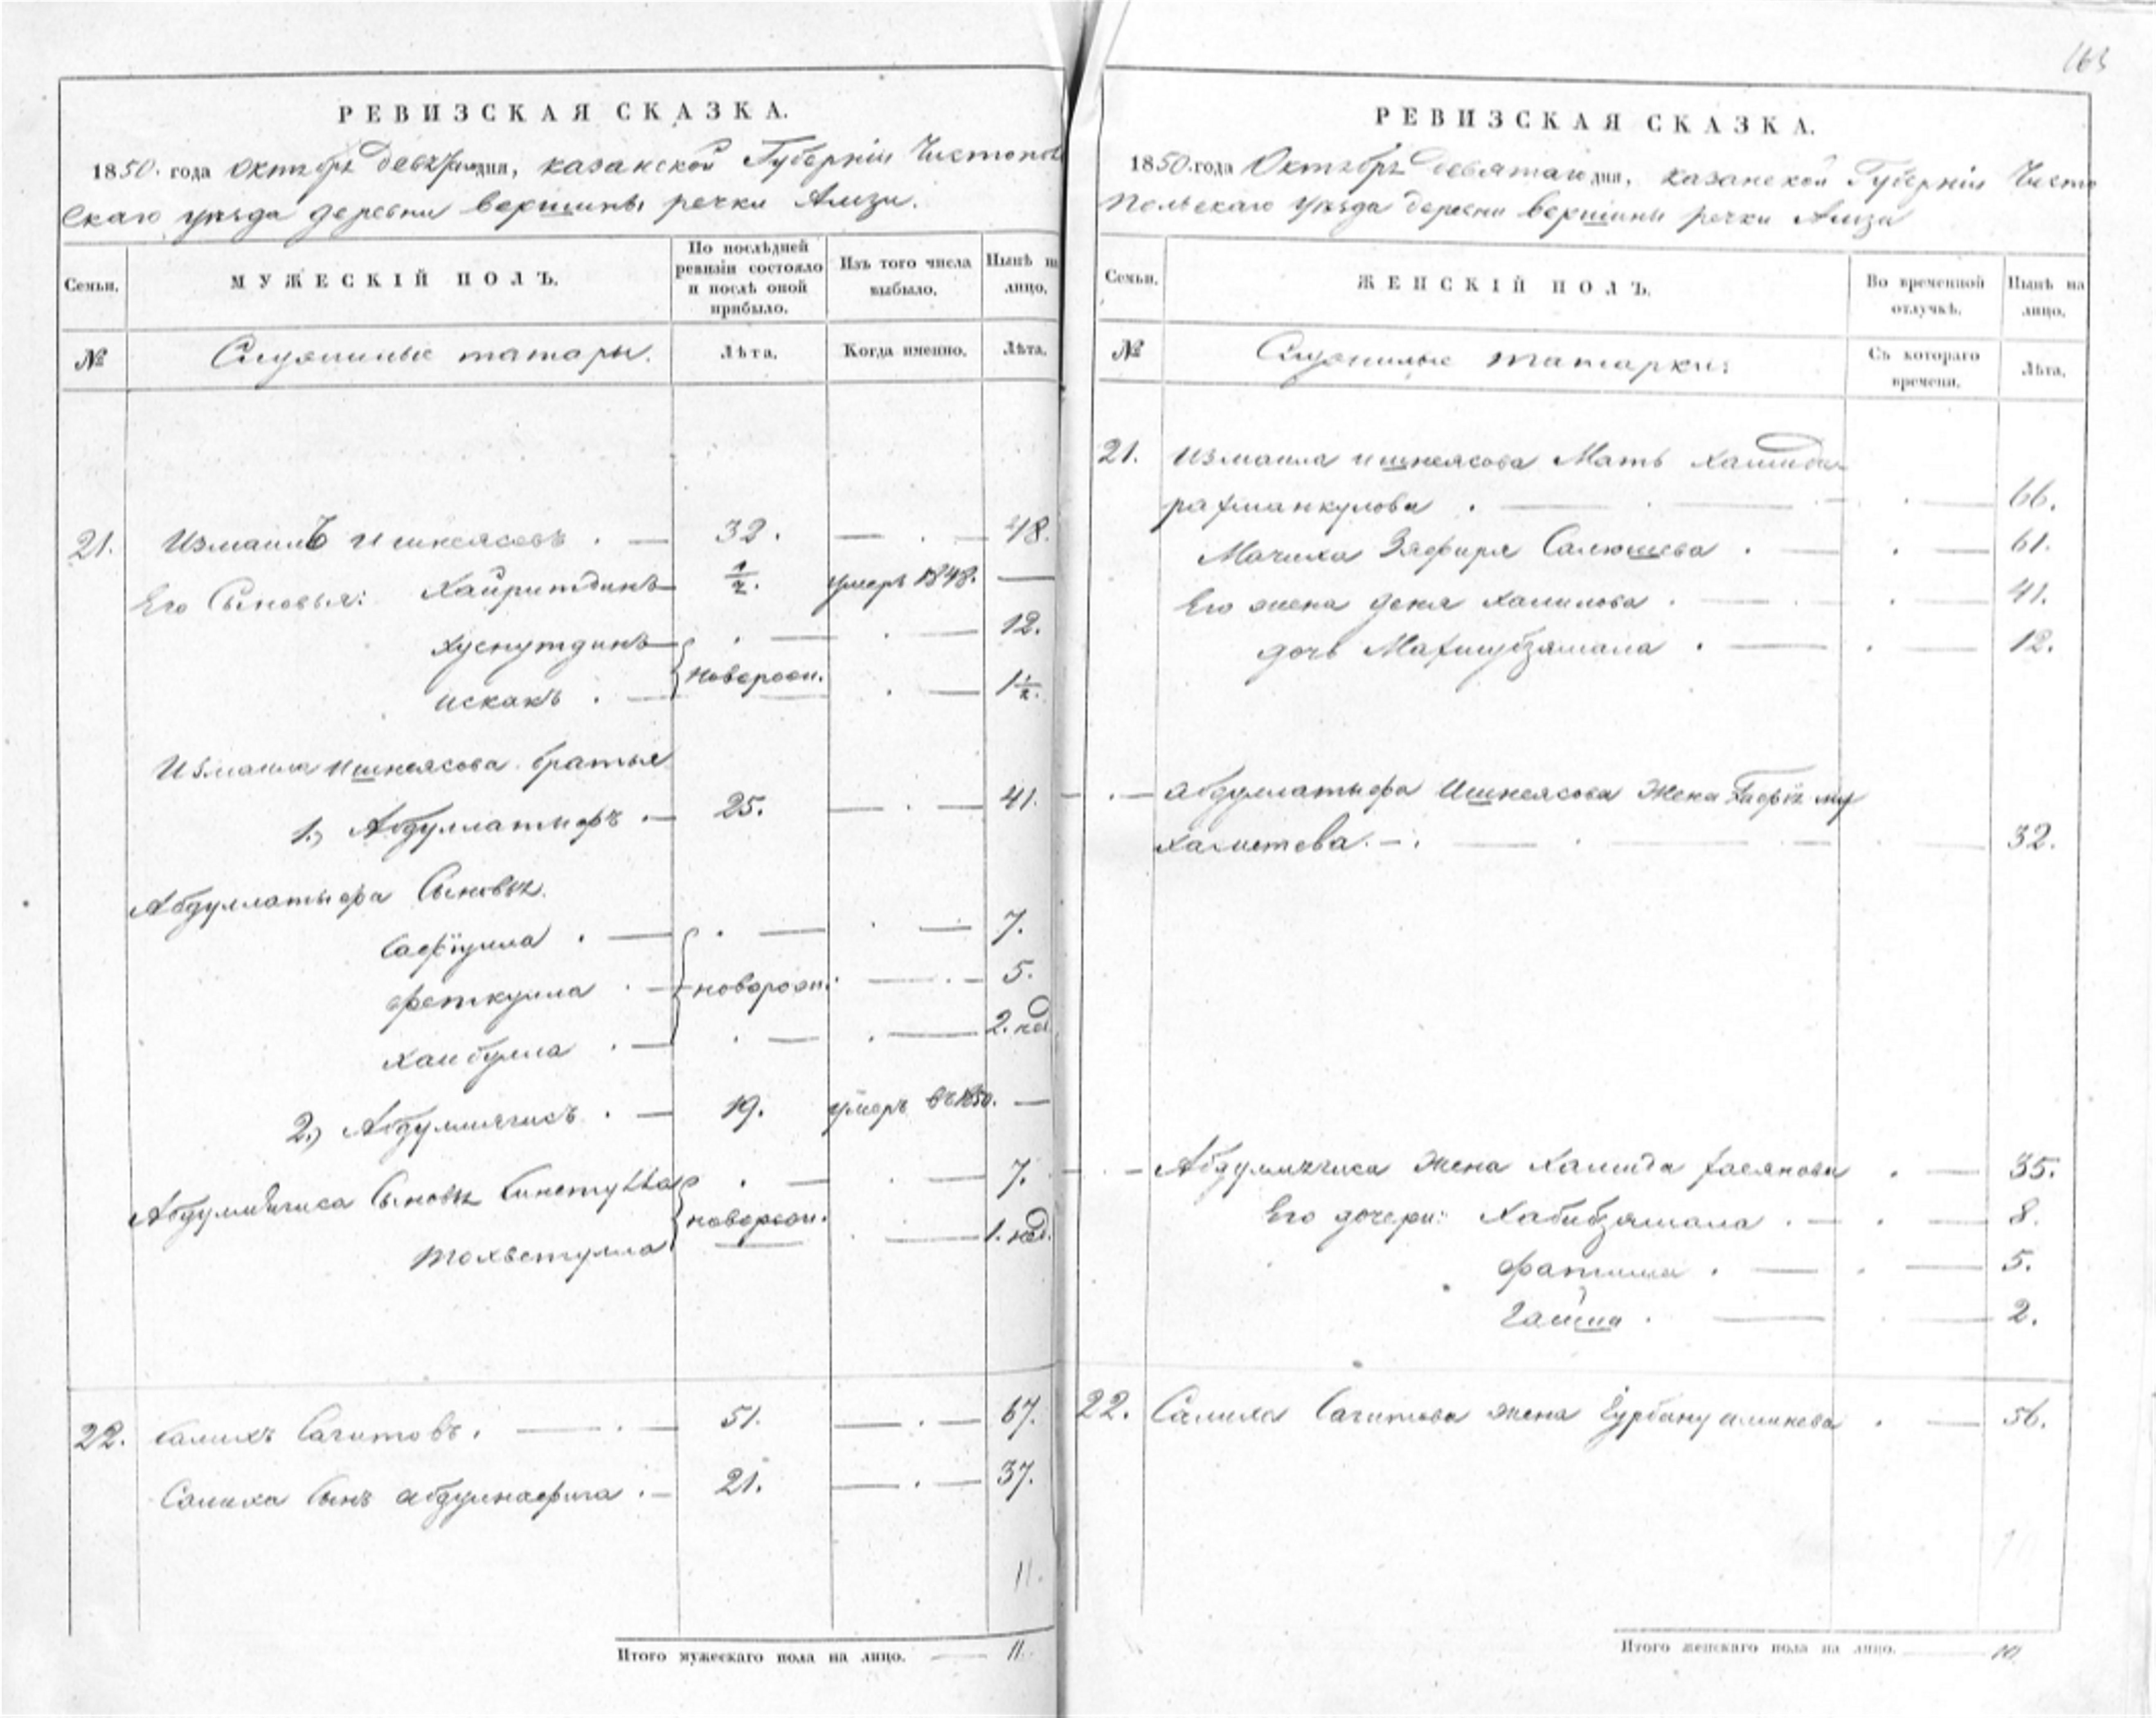 163
РЕВИЗСКАЯ СКАЗКА.
1850. года Октября дня, Казанской Губернии Чистопол
скаго уезда деревни вершины речки Ализи.
Семьи. МУЖЕСКІЙ ПОЛЪ. По послѣдней ревизіи состояло и послѣ оной прибыло. Изъ того числа выбыло. Нынѣ на лицо.
№ Служилые татары. Лѣта. Когда именно. Лѣта.
21. Измаилъ Ишнеясовъ. 32. 48.
Его Сыновья: Хайритдинъ 1/2. умеръ 1848.
Хуснутдинъ 12.
новорож.
Искакъ. 1 1/2.
Измаила Ишнеясова братья
1.) Абдуллатыфъ. 25. 41.
Абдуллатыфа Сыновья.
Сафіулла. 7.
Феткулла. новорож. 5.
Хайбулла. 2. нед.
2.) 19. умеръ въ 1850.
Сыновья 7.
новорож.
1. нед.
22. Салихъ Сагитовъ. 51. 67.
Салиха Сынъ Абдулнафига. 21. 37.
11.
Итого мужескаго пола на лицо. 11.
РЕВИЗСКАЯ СКАЗКА.
1850. года Октября девятаго дня, Казанской Губерніи Чисто
польскаго уезда деревни вершины речки Ализи
Семьи. ЖЕНСКІЙ ПОЛЪ. Во временной отлучкѣ. Нынѣ на лицо.
№ Служилые татарки: Съ котораго времени. Лѣта.
21. Измаила Ишнеясова Мать
рахманкулова. 66.
Мачиха Зяфиря Салюшева. 61.
Его жена Халилова. 41.
дочь Махшубзямала. 12.
Абдуллатыфа Ишнеясова Жена
хаметева. 32.
жена Хамида 35.
Его дочери: Хабибзямала. 8.
Фатима. 5.
Гайша. 2.
22. Салиха Сагитова жена 56.
Итого женскаго пола на лицо. 10.